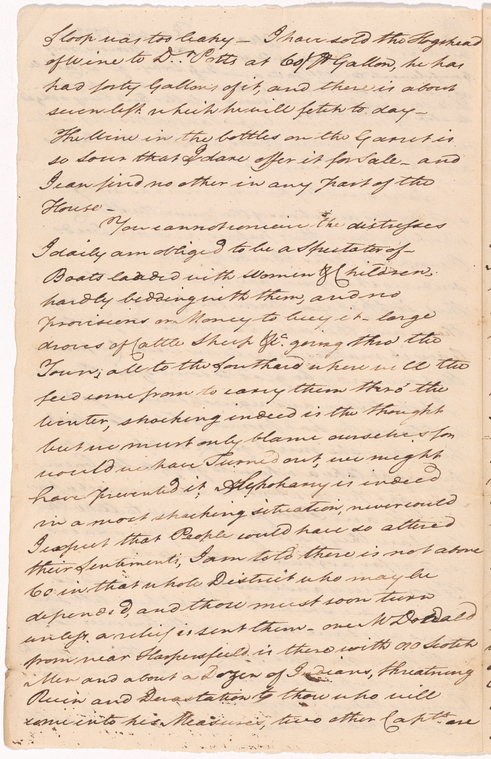 sloop was too leaky — I have sold the Hogshead
of Wine to Dr. Potts at 60/ P Gallon, he has
had forty Gallons of it, and there is about
seven left which he will fetch to day —
The Wine in the bottles on the Garret is
so sour that I dare offer it for Sale — and
I can find no other in any part of the
House —
You cannot conceive the distresses
I daily am obliged to be a Spectator of —
Boats ladded with Women & Children,
hardly bedding with them, and no
provisions or Money to buy it — large
droves of Cattle Sheep &c. going thro the
Town, all to the Southard where will the
feed come from to carry them thro' the
winter, shocking indeed is the thought
but we must only blame ourselves for
would we have Turned out, we might
have prevented it, is indeed
in a most shocking situation, never could
I expect that People would have so altered
their Sentiments, I am told there is not above
60 in that whole District who may be
depended, and those must soon turn
unless a relief is sent them — one McDonald
from near Harpersfield is there with Scotch
Men and about a Dozen of Indians, threatning
Ruin and Devastation to those who will
come into his Measures, two other Capts. are